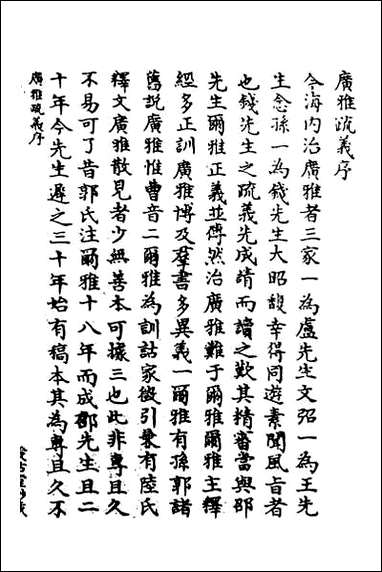 廣雅疏義序
今海内治廣雅者三家一為盧先生文弨一為王先
生念孫一為錢先生大昭馥幸得同遊素聞風旨者
也錢先生之疏義先成請而讀之歎其精審當與邵
先生爾雅正義並傳然治廣雅難于爾雅爾雅主釋
經多正訓廣雅博及羣書多異義一爾雅有孫郭諸
舊說廣雅惟曹音二爾雅為訓詁家徵引兼有陸氏
釋文廣雅散見者少無善本可據三也此非專且久
不易可了昔郭氏注爾雅十八年而成邵先生且二
十年今先生遲之三十年始有稿本其為專且久不
廣雅疏義序